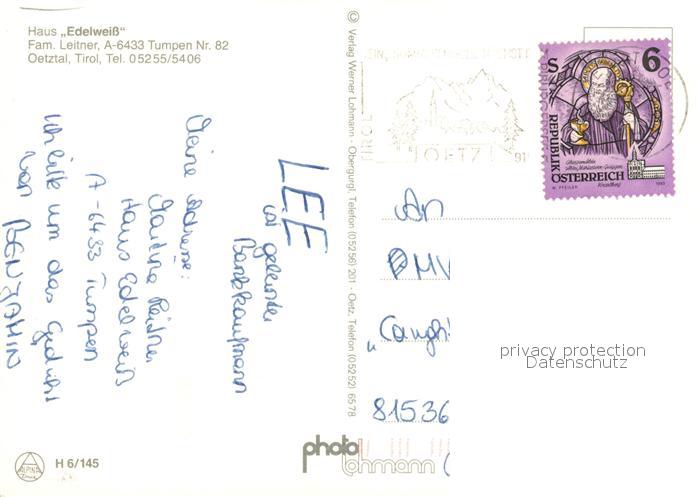 Haus „Edelweiß"
Fam. Leitner, A-6433 Tumpen Nr. 82
Oetztal, Tirol, Tel. 05255/5406
© Verlag Werner Lohmann · Obergurgl, Telefon (05256) 201 · Oetz, Telefon (05252) 6578
LEE
ist gelernter
Bankkaufmann
Meine Adresse:
Martina
Haus Edelweiß
A-6433 Tumpen
Ich bitte um das Gedicht
von BENJAMIN
TIROL
OETZ
6
S
REPUBLIK
ÖSTERREICH
1993
An
"Caugh
81536
privacy protection
Datenschutz
ALPINA
H 6/145
photo
lohmann